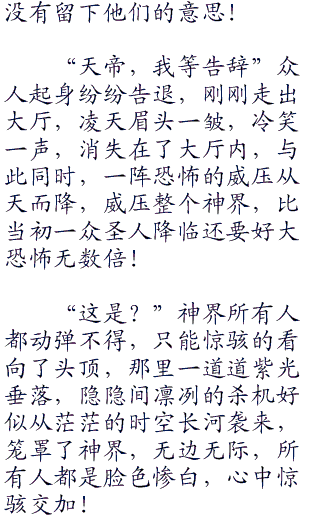 没有留下他们的意思！
“天帝，我等告辞”众
人起身纷纷告退，刚刚走出
大厅，凌天眉头一皱，冷笑
一声，消失在了大厅内，与
此同时，一阵恐怖的威压从
天而降，威压整个神界，比
当初一众圣人降临还要好大
恐怖无数倍！
“这是？”神界所有人
都动弹不得，只能惊骇的看
向了头顶，那里一道道紫光
垂落，隐隐间凛冽的杀机好
似从茫茫的时空长河袭来，
笼罩了神界，无边无际，所
有人都是脸色惨白，心中惊
骇交加！